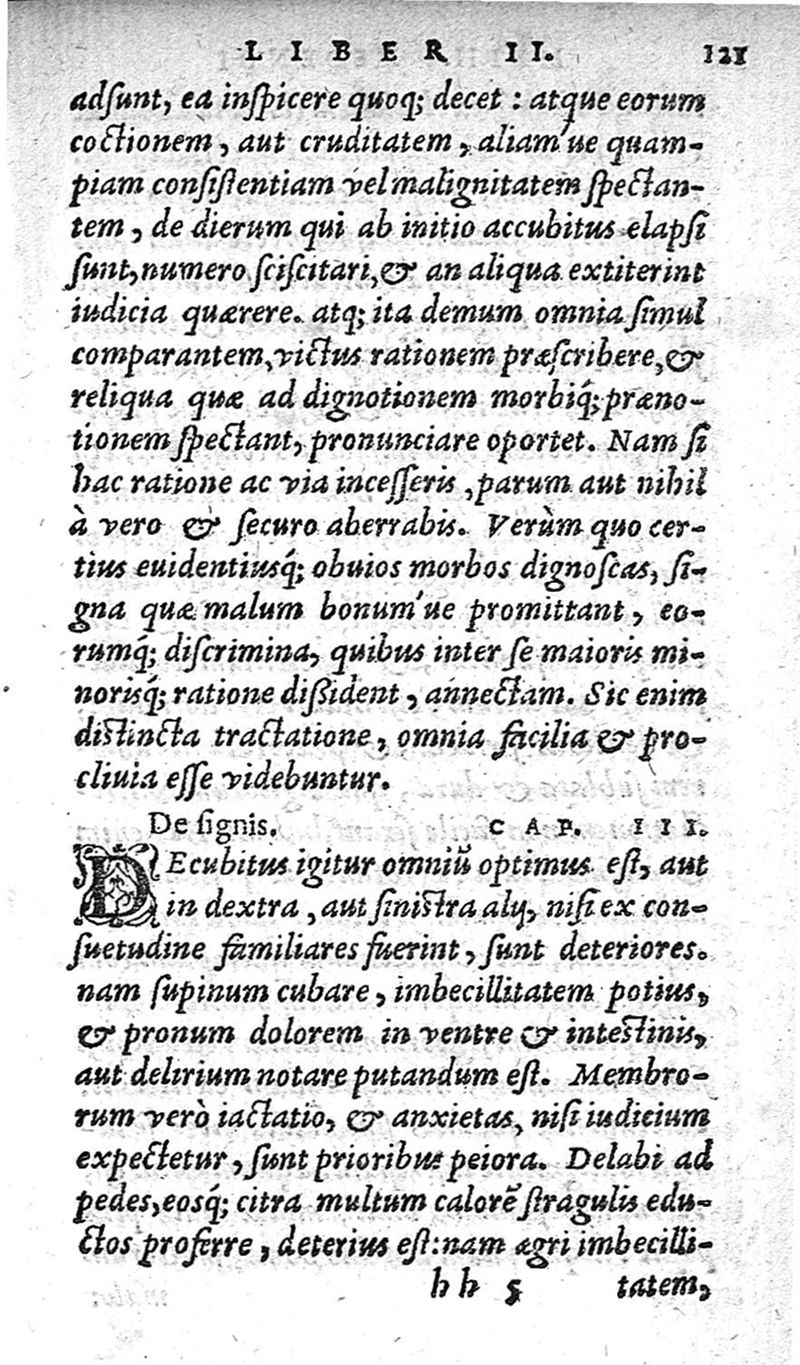 LIBER II. 121
adſunt, ea inſpicere quoq; decet : atque eorum
coctionem, aut cruditatem, aliam'ue quam-
piam conſiſtentiam vel malignitatem ſpectan-
tem, de dierum qui ab initio accubitus elapſi
ſunt, numero ſciſcitari, & an aliqua extiterint
iudicia quærere. atq; ita demum omnia ſimul
comparantem, victus rationem præſcribere, &
reliqua quæ ad dignotionem morbiq́; præno-
tionem ſpectant, pronunciare oportet. Nam ſi
hac ratione ac via inceſſeris, parum aut nihil
à vero & ſecuro aberrabis. Verùm quo cer-
tius euidentiusq́; obuios morbos dignoſcas, ſi-
gna quæ malum bonum'ue promittant, eo-
rumq́; diſcrimina, quibus inter ſe maioris mi-
norisq́; ratione diſsident, annectam. Sic enim
diſtincta tractatione, omnia facilia & pro-
cliuia eſſe videbuntur.
De ſignis. CAP. III.
DEcubitus igitur omniũ optimus eſt, aut
in dextra, aut ſiniſtra alij, niſi ex con-
ſuetudine familiares fuerint, ſunt deteriores.
nam ſupinum cubare, imbecillitatem potius,
& pronum dolorem in ventre & inteſtinis,
aut delirium notare putandum eſt. Membro-
rum verò iactatio, & anxietas, niſi iudicium
expectetur, ſunt prioribus peiora. Delabi ad
pedes, eosq́; citra multum calorẽ ſtragulis edu-
ctos proferre, deterius eſt: nam ægri imbecilli-
hh 5 tatem,